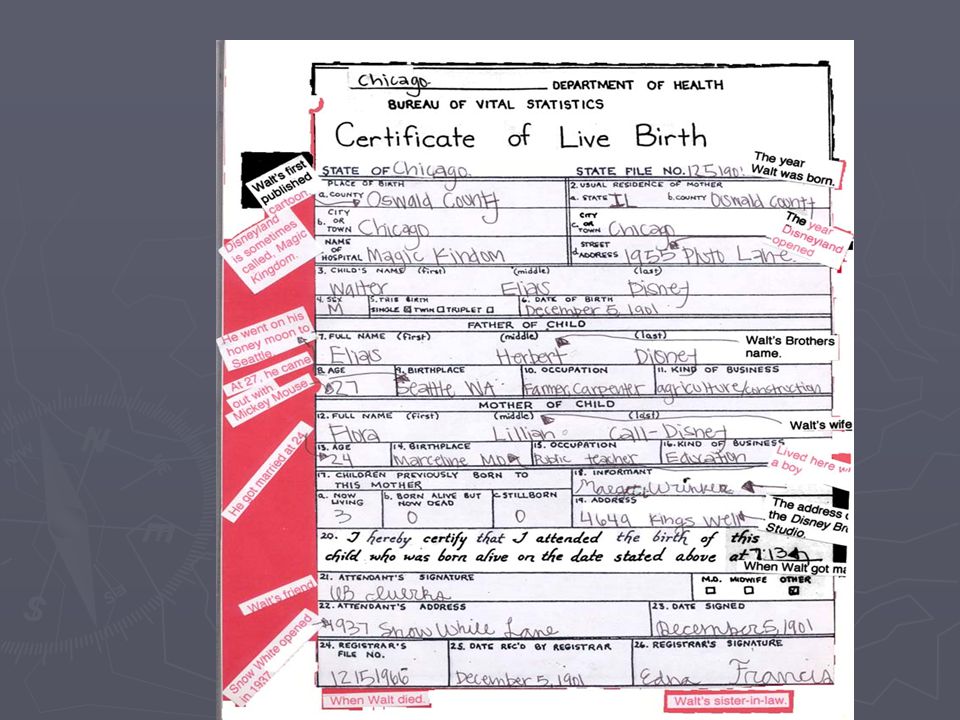 Chicago DEPARTMENT OF HEALTH
BUREAU OF VITAL STATISTICS
Certificate of Live Birth
STATE OF Chicago. STATE FILE NO. 1251901
The year
Walt was born.
Walt's first
published
cartoon.
PLACE OF BIRTH
a. COUNTY Oswald County
2. USUAL RESIDENCE OF MOTHER
a. STATE IL b. COUNTY Oswald County
Disneyland
is sometimes
called, Magic
Kingdom.
CITY
b. OR
TOWN Chicago
CITY
c. OR
TOWN Chicago
The year
Disneyland
opened
NAME
OF
HOSPITAL Magic Kindom
STREET
d. ADDRESS 1955 Pluto Lane
3. CHILD'S NAME (first) (middle) (last)
Walter Elias Disney
4. SEX
M
5. THIS BIRTH
SINGLE ☒ TWIN ☐ TRIPLET ☐
6. DATE OF BIRTH
December 5, 1901
FATHER OF CHILD
He went on his
honey moon to
Seattle.
7. FULL NAME (first) (middle) (last)
Elias Herbert Disney
Walt's Brothers
name.
At 27, he came
out with
Mickey Mouse
8. AGE
27
9. BIRTHPLACE
Seattle WA
10. OCCUPATION
Farmer, Carpenter
11. KIND OF BUSINESS
agriculture/construction
MOTHER OF CHILD
12. FULL NAME (first) (middle) (last)
Flora Lillian Call-Disney
Walt's wife
He got married at 24
13. AGE
24
14. BIRTHPLACE
Marceline MO
15. OCCUPATION
Public teacher
16. KIND OF BUSINESS
Education
Lived here
a boy
17. CHILDREN PREVIOUSLY BORN TO
THIS MOTHER
a. NOW
LIVING
3
b. BORN ALIVE BUT
NOW DEAD
0
c. STILLBORN
0
18. INFORMANT
19. ADDRESS
4649 Kings Well
The address
the Disney
Studio.
20. I hereby certify that I attended the birth of this
child who was born alive on the date stated above at 7:13
When Walt got
21. ATTENDANT'S SIGNATURE
UB Iwerks
M.D. MIDWIFE OTHER
☐ ☐ ☒
Walt's friend
22. ATTENDANT'S ADDRESS
1937 Snow White Lane
23. DATE SIGNED
December 5, 1901
Snow White opened
in 1937
24. REGISTRAR'S
FILE NO.
12151966
25. DATE REC'D BY REGISTRAR
December 5, 1901
26. REGISTRAR'S SIGNATURE
Edna Francis
When Walt died.
Walt's sister-in-law.